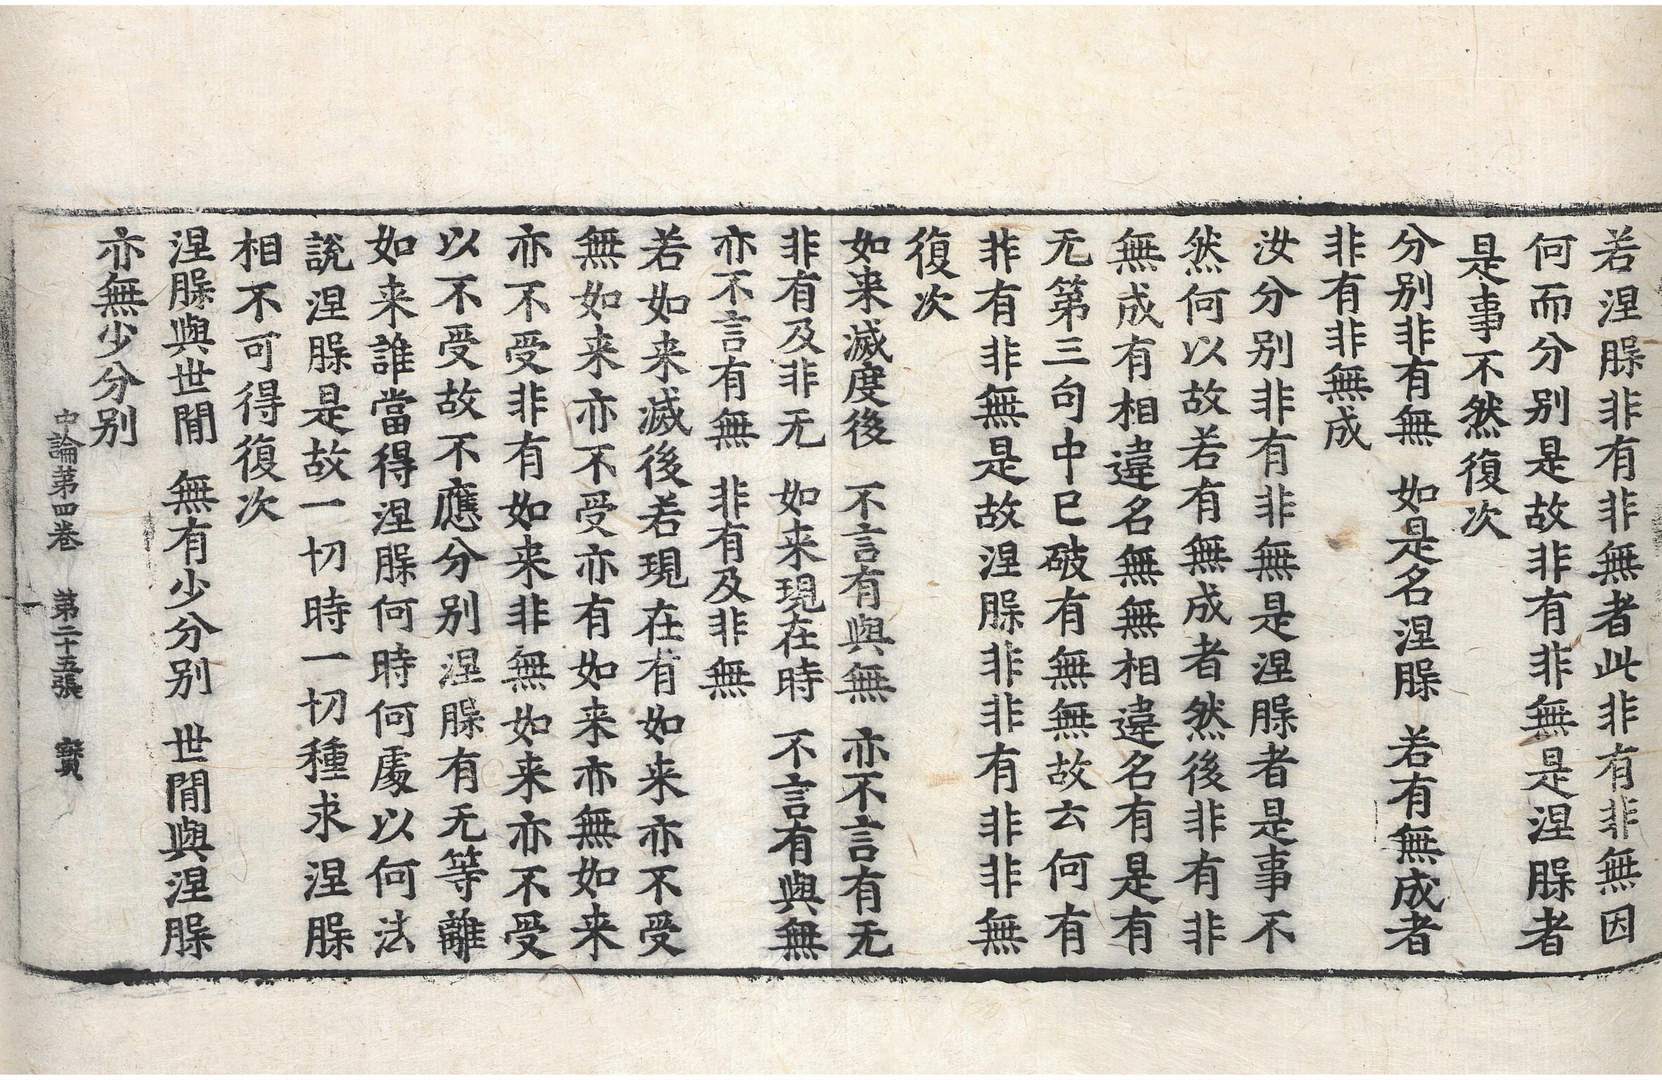 若涅脲非有非無者此非有非無因
何而分别是故非有非無是涅脲者
是事不然復次
分别非有無　如是名涅脲　若有無成者
非有非無成
汝分别非有非無是涅脲者是事不
然何以故若有無成者然後非有非
無成有相違名無無相違名有是有
无第三句中已破有無無故云何有
非有非無是故涅脲非非有非非無
復次
如来滅度後　不言有與無　亦不言有无
非有及非无　如来現在時　不言有與無
亦不言有無　非有及非無
若如来滅後若現在有如来亦不受
無如来亦不受亦有如来亦無如来
亦不受非有如来非無如来亦不受
以不受故不應分别涅脲有无等離
如来誰當得涅脲何時何處以何法
說涅脲是故一切時一切種求涅脲
相不可得復次
涅脲與世間　無有少分别　世間與涅脲
亦無少分别
中論第四卷　第二十五張　寳